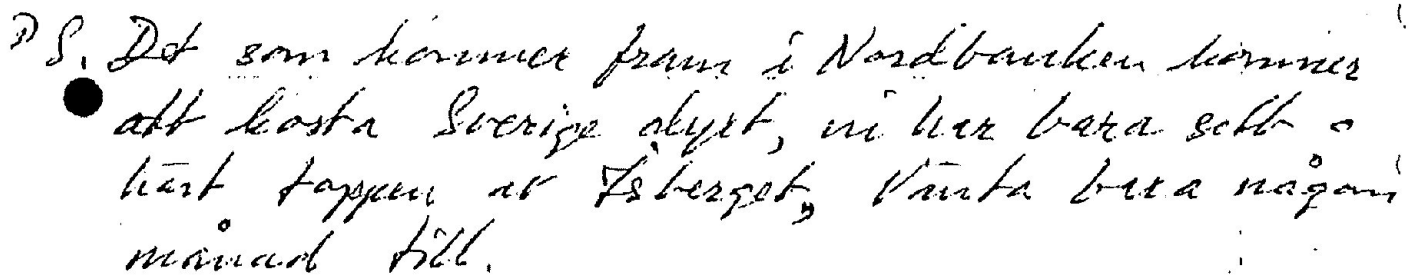 PS. Det som kommer fram i Nordbanken kommer
att kosta Sverige dyrt, vi har bara sett o
hört toppen av Isberget, Vänta bara någon
månad till.